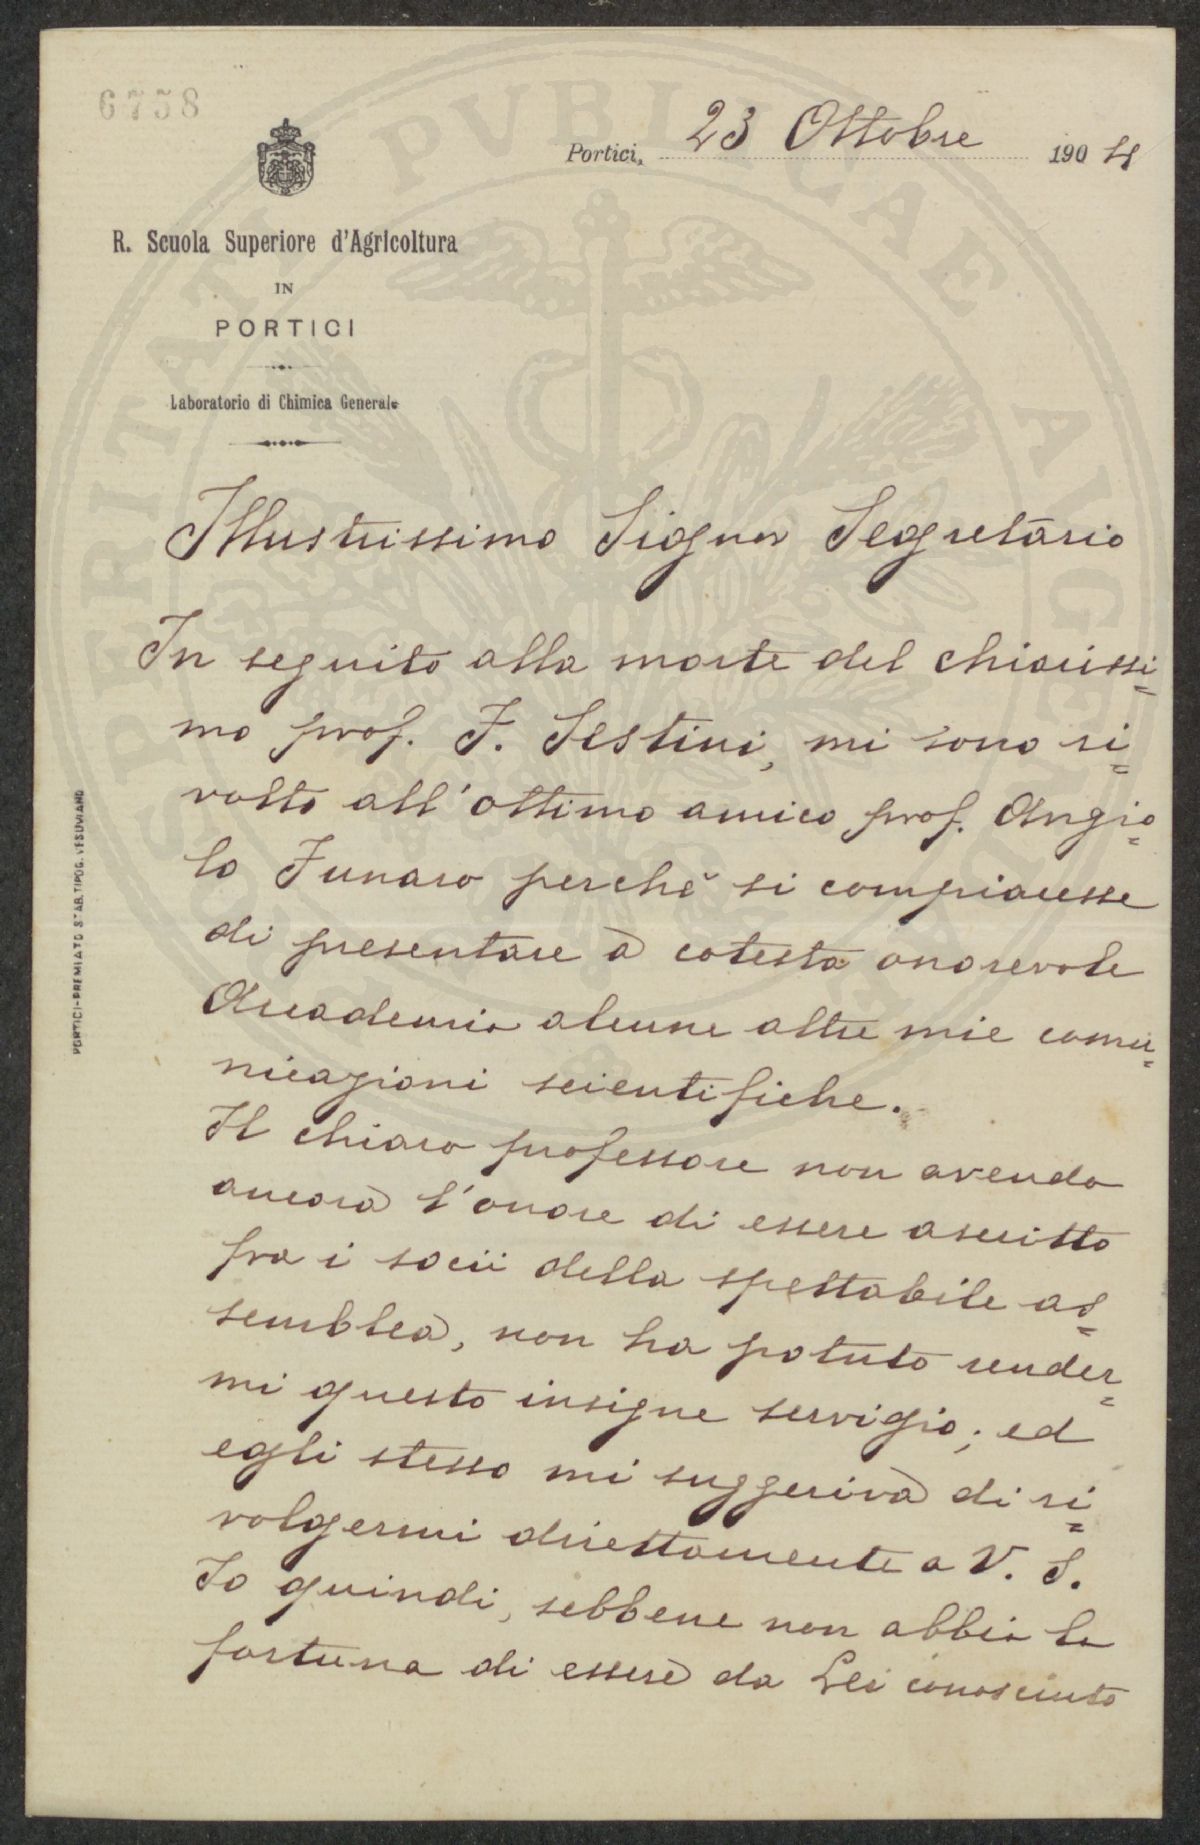 6758
Portici, 23 Ottobre 1904
R. Scuola Superiore d'Agricoltura
IN
PORTICI
Laboratorio di Chimica Generale
Illustrissimo Signor Segretario
In seguito alla morte del chiarissi=
mo prof. F. Sestini, mi sono ri=
volto all'ottimo amico prof. Angio=
lo Funaro perchè si compiacesse
di presentare à cotesta onorevole
Accademia alcune altre mie comu=
nicazioni scientifiche.
Il chiaro professore non avendo
ancora l'onore di essere ascritto
fra i socii della spettabile as=
semblea, non ha potuto render=
mi questo insigne servigio; ed
egli stesso mi suggeriva di ri=
volgermi direttamente a V. S.
Io quindi, sebbene non abbia la
fortuna di essere da Lei conosciuto
PORTICI-PREMIATO STAB. TIPOG. VESUVIANO
PROSPERITATI PVBLICAE AVGENDAE